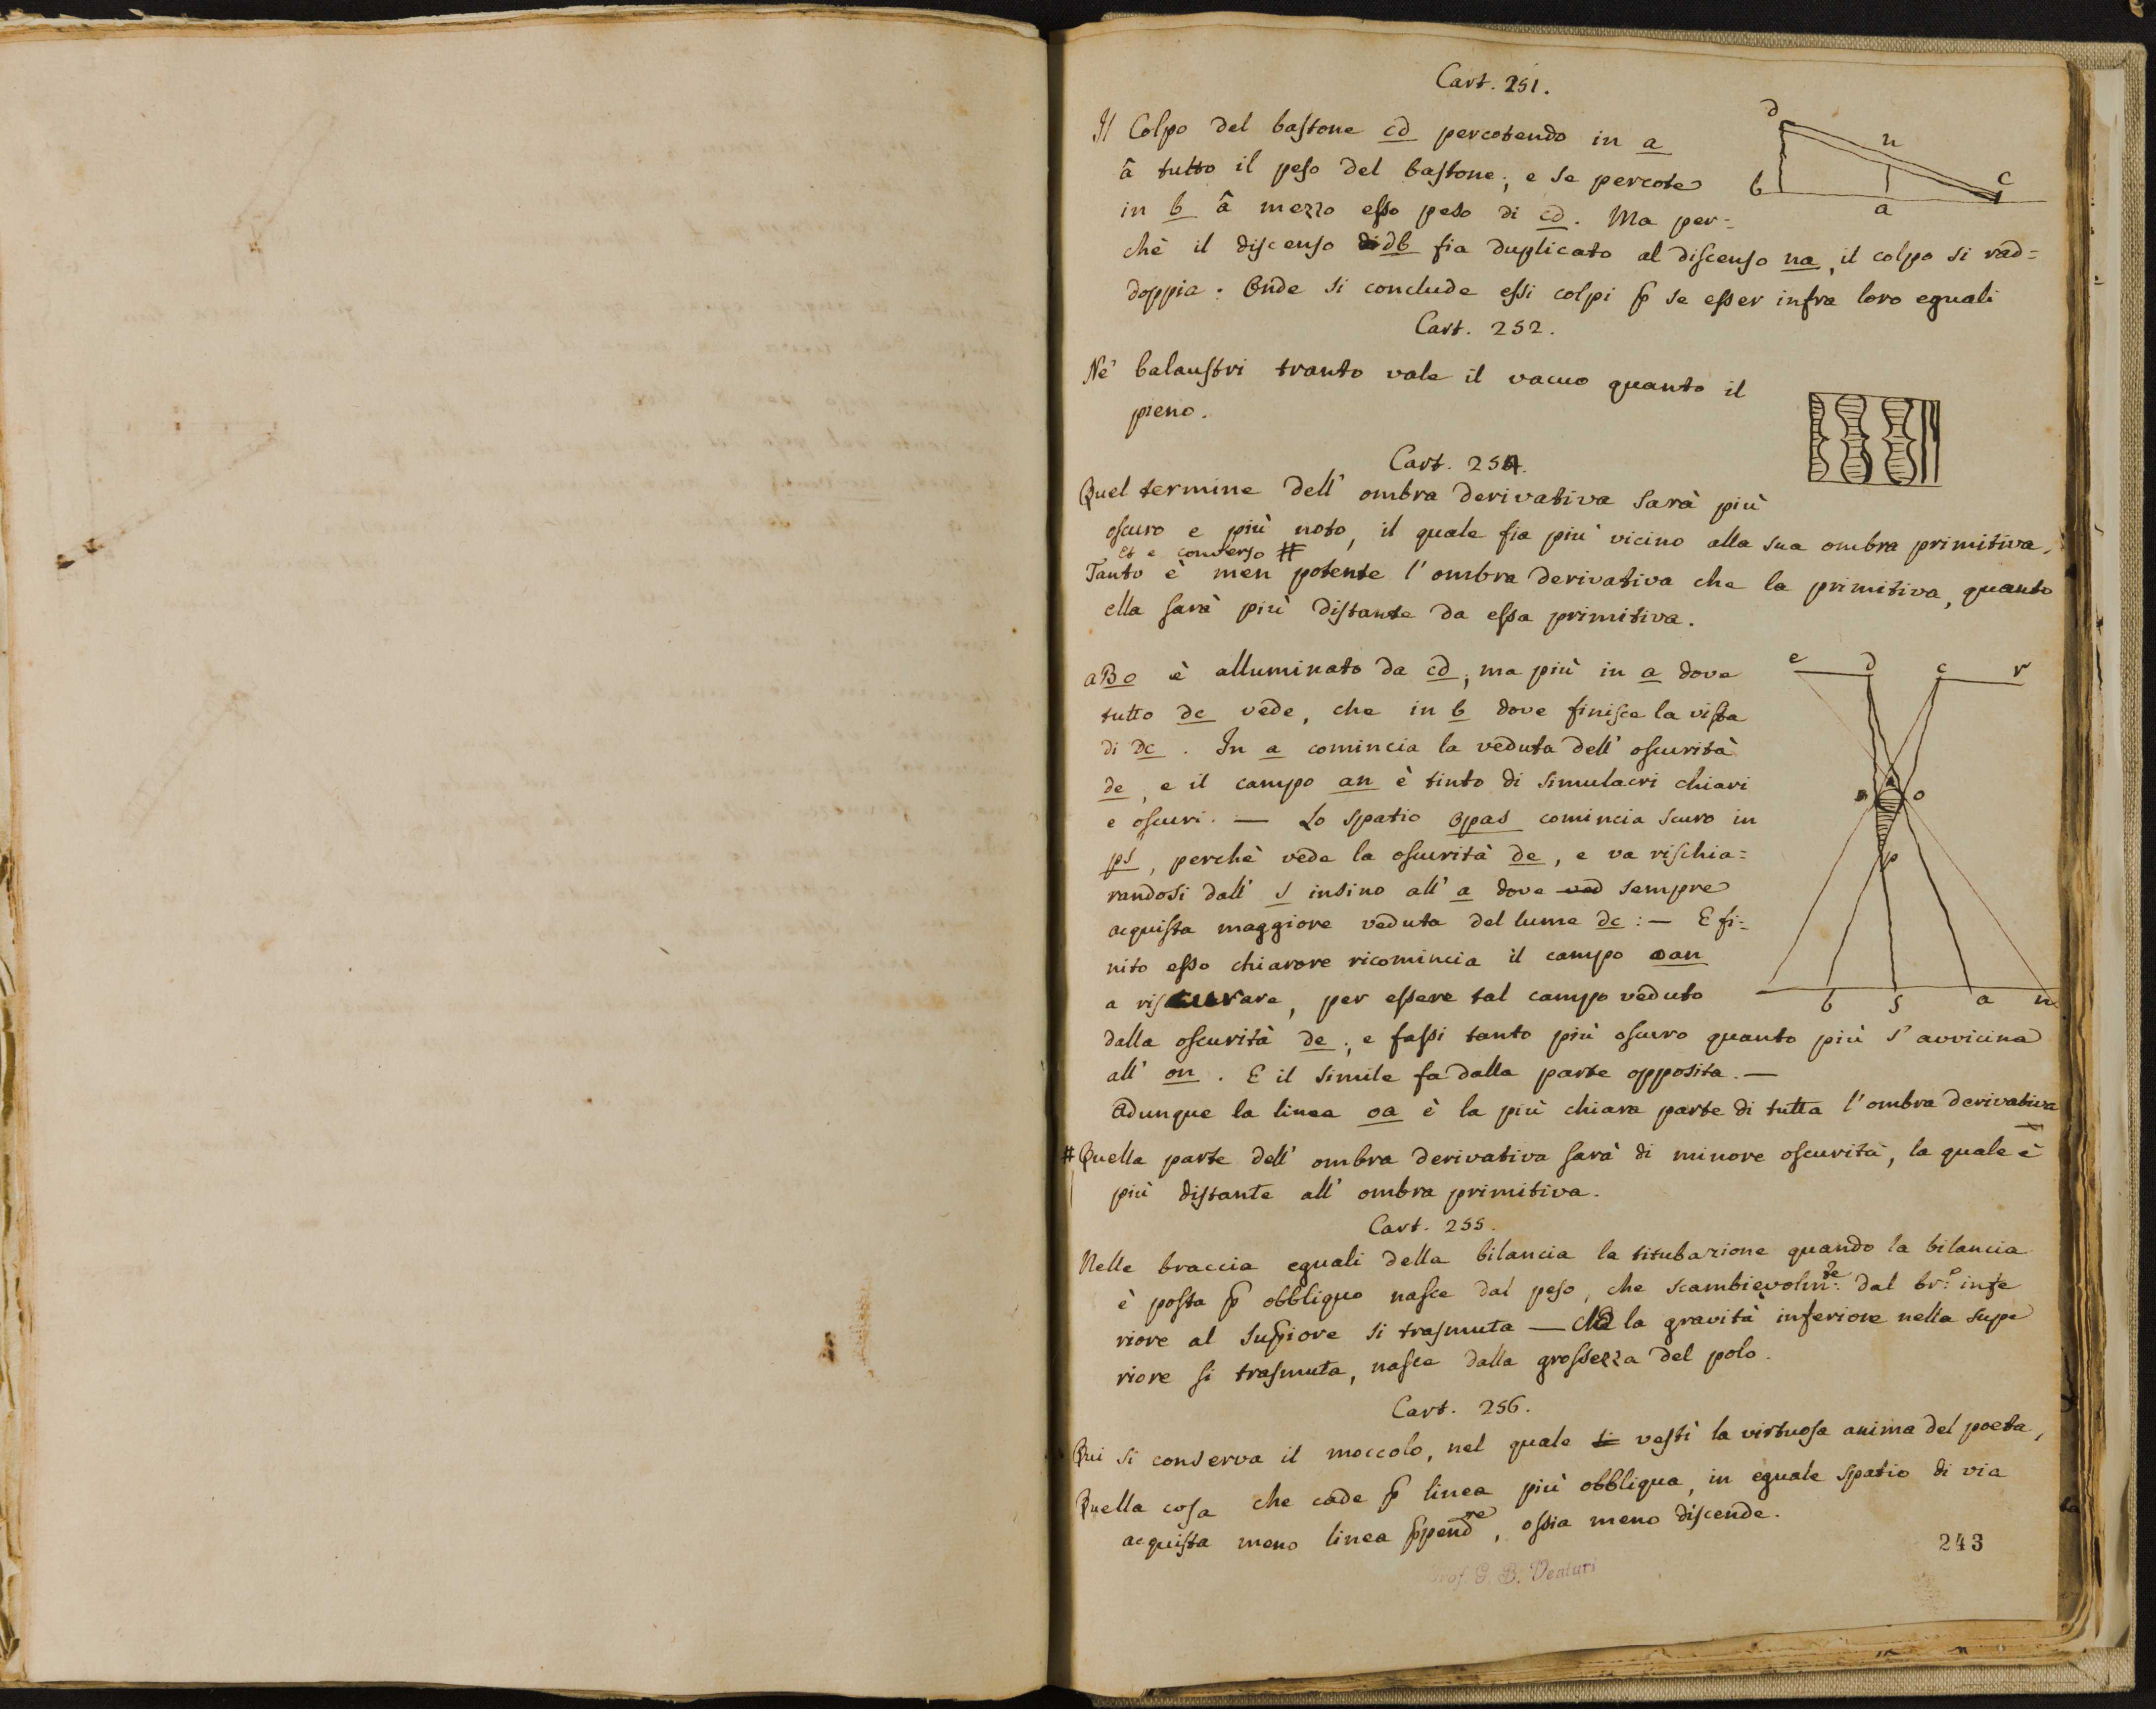 Cart. 251.
Il Colpo del bastone cd percotendo in a
â tutto il peso del bastone; e se percote
in b â mezzo esso peso di cd. Ma per=
chè il discenso di db fia duplicato al discenso na, il colpo si rad=
doppia: Onde si conclude essi colpi ꝑ se esser infra loro eguali
d n c b a
Cart. 252.
Ne' balaustri tranto vale il vacuo quanto il
pieno.
Cart. 254.
Quel termine dell' ombra derivativa sarà più
oscuro e più noto, il quale fia più vicino alla sua ombra primitiva.
Et e converso #
Tanto è men potente l'ombra derivativa che la primitiva, quanto
ella sarà più distante da essa primitiva.
aBo è alluminato da cd; ma più in a dove
tutto dc vede, che in b dove finisce la vista
di dc. In a comincia la veduta dell' oscurità
de, e il campo an è tinto di simulacri chiari
e oscuri. — Lo spatio opas comincia scuro in
ps, perchè vede la oscurità de, e va rischia=
randosi dall' s insino all' a dove ved sempre
acquista maggiore veduta del lume dc: — E fi=
nito esso chiarore ricomincia il campo oan
a riscurare, per essere tal campo veduto
dalla oscurità de; e fassi tanto più oscuro quanto più s'avvicina
all' on. E il simile fa dalla parte opposita. —
Adunque la linea oa è la più chiara parte di tutta l'ombra derivativa
e d c r
o
p
b s a n
# Quella parte dell' ombra derivativa sarà di minore oscurità, la quale è
più distante all' ombra primitiva.
Cart. 255.
Nelle braccia eguali della bilancia la titubazione quando la bilancia
è posta ꝑ obbliquo nasce dal peso, che scambievolmte: dal br:o infe
riore al suꝑiore si trasmuta — che la gravità inferiore nella supe
riore si trasmuta, nasce dalla grossezza del polo.
Cart. 256.
Qui si conserva il moccolo, nel quale si vestì la virtuosa anima del poeta,
Quella cosa che cade ꝑ linea più obbliqua, in eguale spatio di via
acquista meno linea ꝑpendre, ossia meno discende.
243
Prof. G. B. Venturi